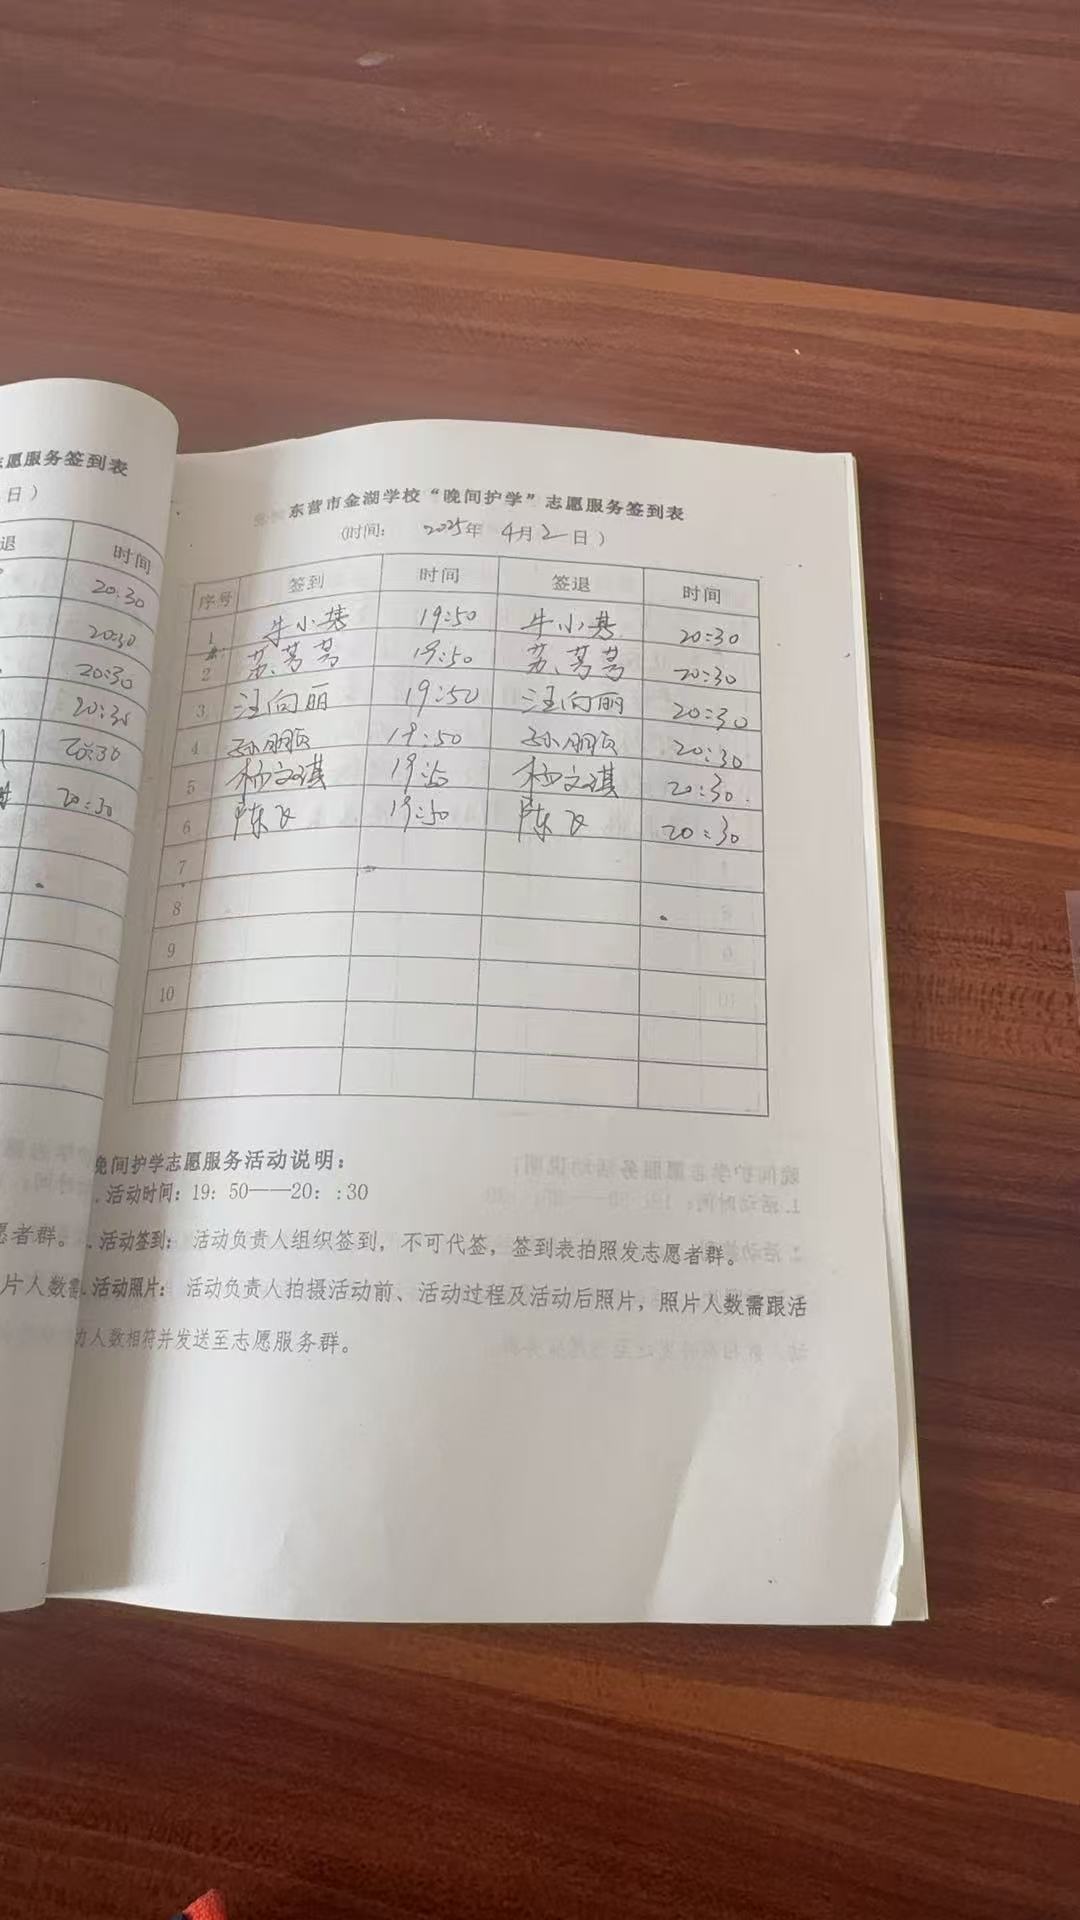 志愿服务签到表
日）
退 时间
20:30
20:30
20:30
20:30
20:30
20:30
愿者群。
片人数需
东营市金湖学校“晚间护学”志愿服务签到表
(时间： 2025年 4月2日）
序号 签到 时间 签退 时间
1 牛小 19:50 牛小 20:30
2 苏 19:50 苏 20:30
3 汪向丽 19:50 汪向丽 20:30
4 孙 19:50 孙 20:30
5 杨文琪 19:50 杨文琪 20:30
6 陈飞 19:50 陈飞 20:30
7
8
9
10
晚间护学志愿服务活动说明：
.活动时间：19：50——20：:30
.活动签到： 活动负责人组织签到，不可代签，签到表拍照发志愿者群。
.活动照片： 活动负责人拍摄活动前、活动过程及活动后照片，照片人数需跟活
动人数相符并发送至志愿服务群。